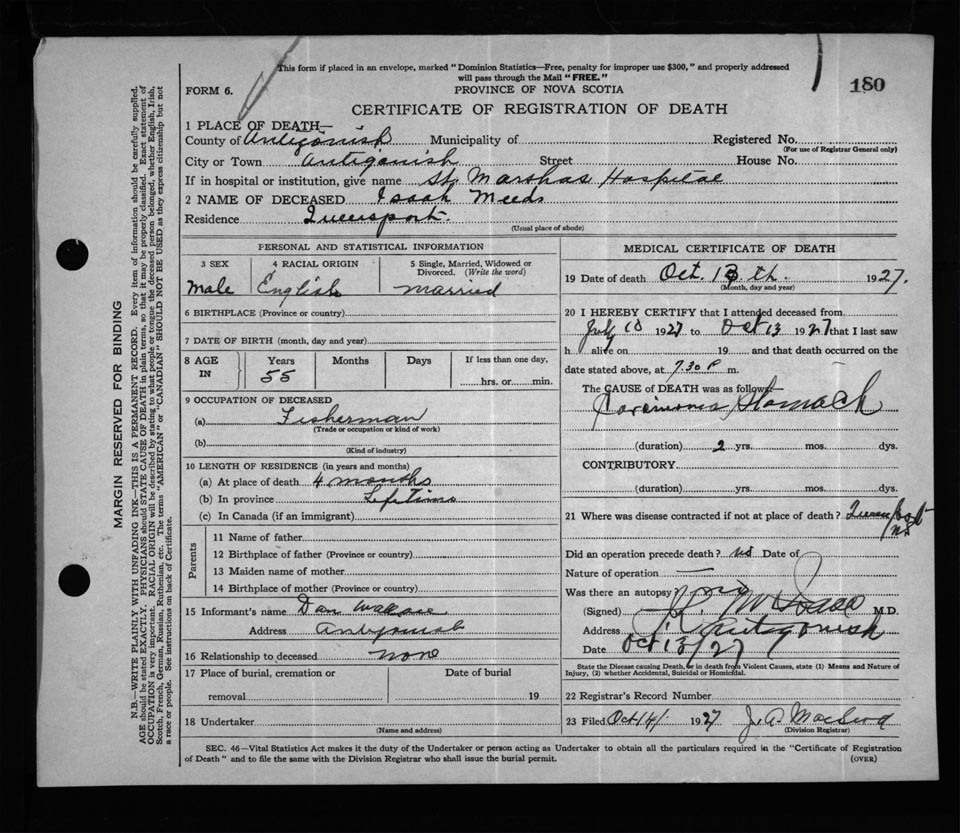 This form if placed in an envelope, marked "Dominion Statistics—Free, penalty for improper use $300," and properly addressed
will pass through the Mail "FREE."
FORM 6.
PROVINCE OF NOVA SCOTIA
180
CERTIFICATE OF REGISTRATION OF DEATH
1 PLACE OF DEATH—
County of Antigonish Municipality of Registered No.
(For use of Registrar General only)
City or Town Antigonish Street House No.
If in hospital or institution, give name St. Marthas Hospital
2 NAME OF DECEASED Isaah Meeds
Residence Queensport.
(Usual place of abode)
PERSONAL AND STATISTICAL INFORMATION
3 SEX 4 RACIAL ORIGIN 5 Single, Married, Widowed or Divorced. (Write the word)
Male English Married
6 BIRTHPLACE (Province or county)
7 DATE OF BIRTH (month, day and year)
8 AGE IN Years Months Days If less than one day,
55 hrs. or min.
9 OCCUPATION OF DECEASED
(a) Fisherman
(Trade or occupation or kind of work)
(b)
(Kind of industry)
10 LENGTH OF RESIDENCE (in years and months)
(a) At place of death 4 months
(b) In province Lifetime
(c) In Canada (if an immigrant)
Parents
11 Name of father
12 Birthplace of father (Province or country)
13 Maiden name of mother
14 Birthplace of mother (Province or country)
15 Informant's name Dan
Address Antigonish
16 Relationship to deceased none
17 Place of burial, cremation or Date of burial
removal 19
18 Undertaker
(Name and address)
MEDICAL CERTIFICATE OF DEATH
19 Date of death Oct. 13 th. 1927.
(Month, day and year)
20 I HEREBY CERTIFY that I attended deceased from
July 10 1927 to Oct 13 1927 that I last saw
h alive on 19 and that death occurred on the
date stated above, at 7.30 P m.
The CAUSE of DEATH was as follows:—
Carcinoma Stomach
(duration) 2 yrs. mos. dys.
CONTRIBUTORY
(duration) yrs. mos. dys.
21 Where was disease contracted if not at place of death? Queensport
NS
Did an operation precede death? no Date of
Nature of operation —
Was there an autopsy? no
(Signed) M.D.
Address Antigonish
Date Oct 13/27
State the Disease causing Death, or in death from Violent Causes, state (1) Means and Nature of
Injury, (2) whether Accidental, Suicidal or Homicidal.
22 Registrar's Record Number
23 Filed Oct 14/ 1927 J. A.
(Division Registrar)
SEC. 46—Vital Statistics Act makes it the duty of the Undertaker or person acting as Undertaker to obtain all the particulars required in the "Certificate of Registration
of Death" and to file the same with the Division Registrar who shall issue the burial permit. (OVER)
MARGIN RESERVED FOR BINDING
N.B.—WRITE PLAINLY WITH UNFADING INK—THIS IS A PERMANENT RECORD. Every item of information should be carefully supplied.
AGE should be stated EXACTLY. PHYSICIANS should STATE CAUSE OF DEATH in plain terms, so that it may be properly classified. Exact statement of
OCCUPATION is very important. RACIAL ORIGIN will be described by stating to what people or tongue the deceased person belonged, whether English, Irish,
Scotch, French, German, Russian, Ruthenian, etc. The terms "AMERICAN" or "CANADIAN" SHOULD NOT BE USED as they express citizenship but not
a race or people. See instructions on back of Certificate.